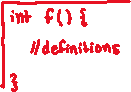 int f() {
//definitions
}